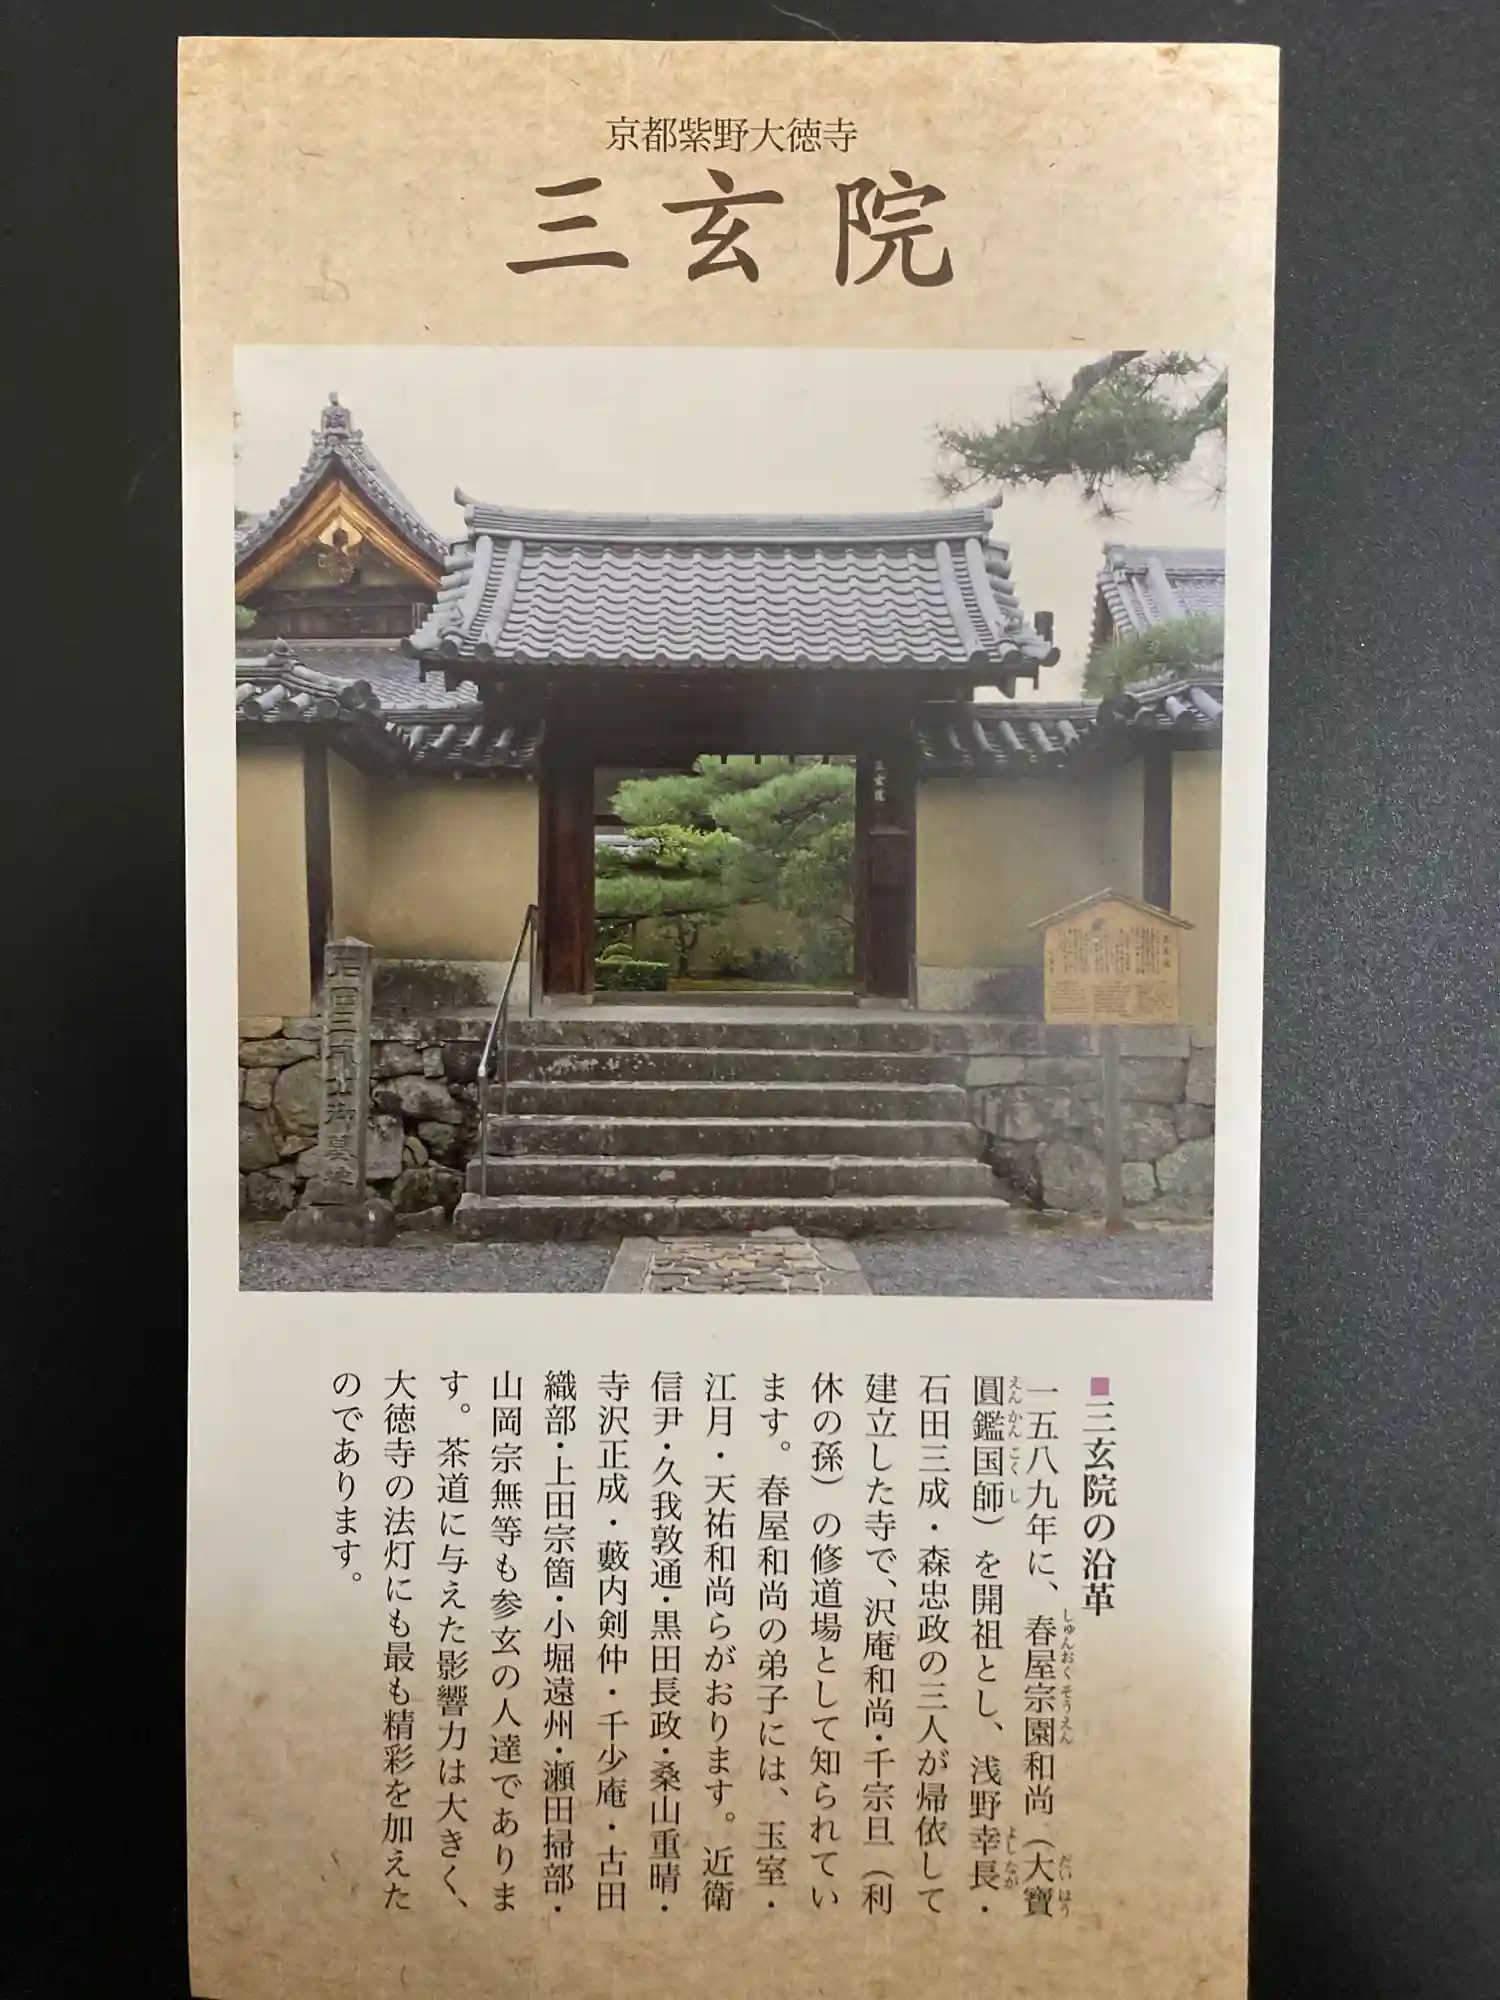 京都紫野大徳寺
三玄院
三玄院
石田三成公御墓地
■三玄院の沿革
一五八九年に、春屋宗園和尚（大寶
しゅんおくそうえん
だいほう
圓鑑国師）を開祖とし、浅野幸長・
えんかんこくし
よしなが
石田三成・森忠政の三人が帰依して
建立した寺で、沢庵和尚・千宗旦（利
休の孫）の修道場として知られてい
ます。春屋和尚の弟子には、玉室・
江月・天祐和尚らがおります。近衛
信尹・久我敦通・黒田長政・桑山重晴・
寺沢正成・藪内剣仲・千少庵・古田
織部・上田宗箇・小堀遠州・瀬田掃部・
山岡宗無等も参玄の人達でありま
す。茶道に与えた影響力は大きく、
大徳寺の法灯にも最も精彩を加えた
のであります。